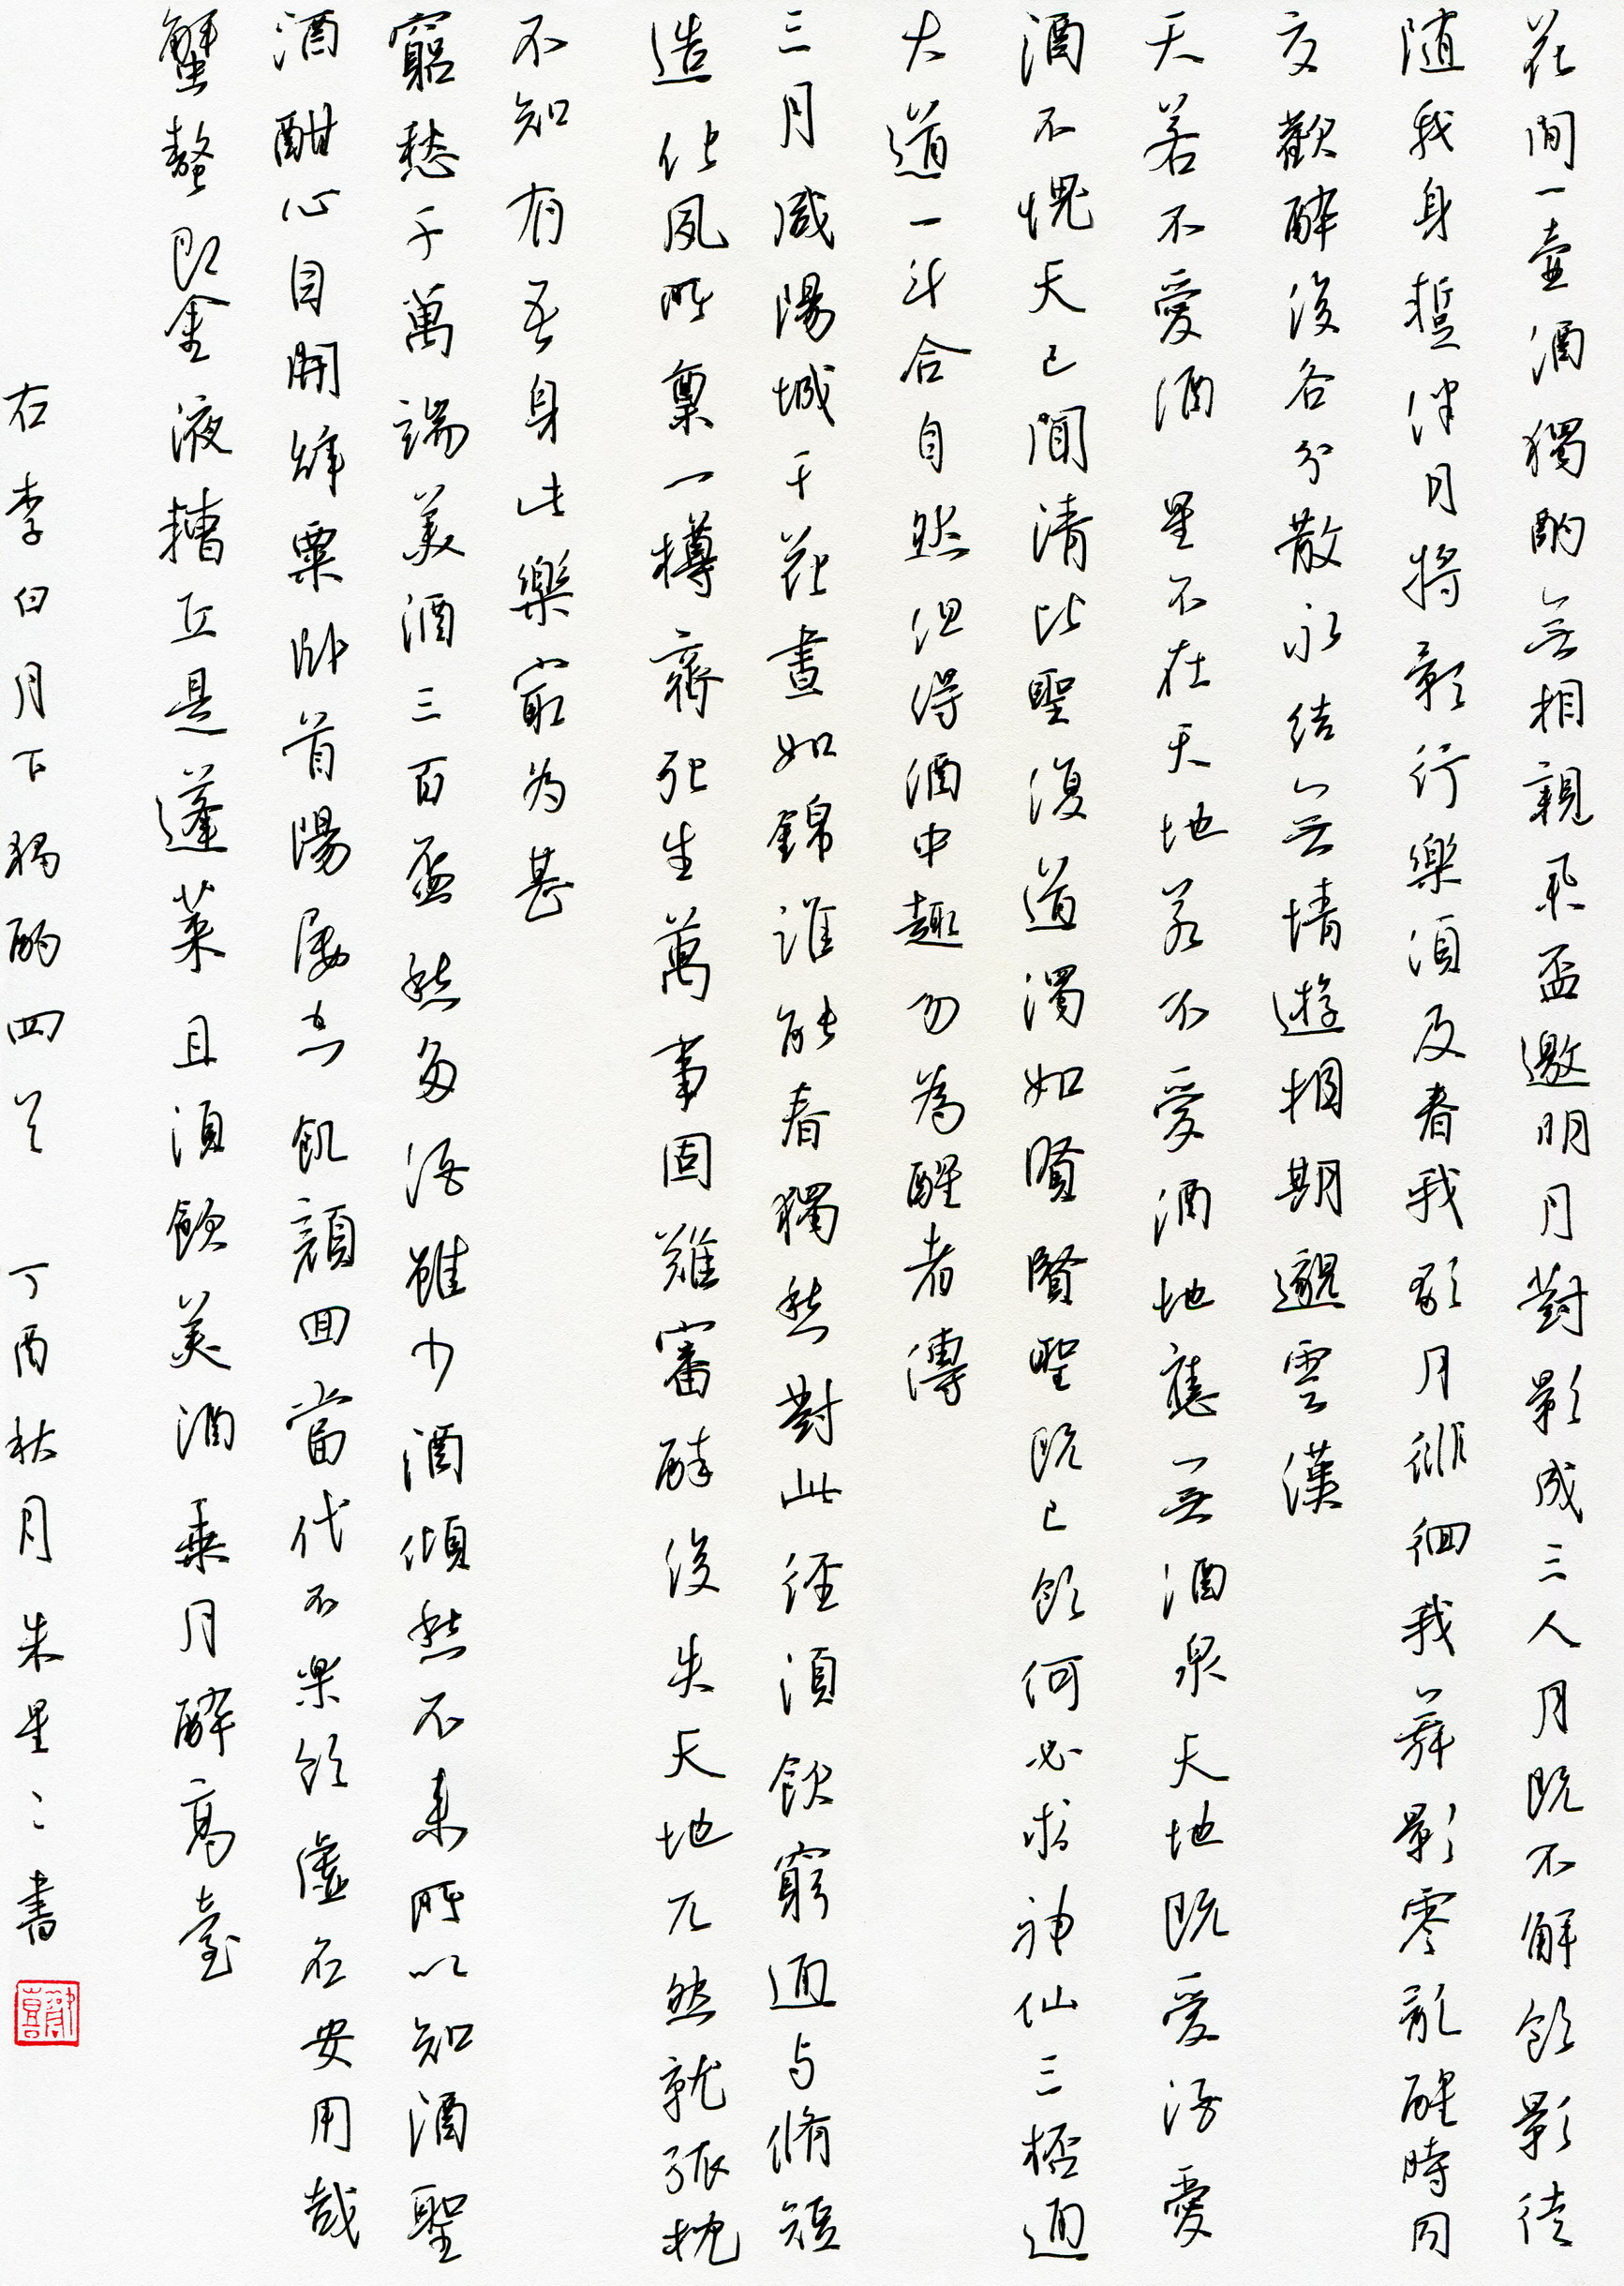 花間一壺酒獨酌無相親舉盃邀明月對影成三人月既不解飲影徒
隨我身蹔伴月將影行樂須及春我歌月徘徊我舞影零亂醒時同
交歡醉後各分散永結無情遊相期邈雲漢
天若不愛酒 星不在天地若不愛酒地應無酒泉天地既愛酒愛
酒不愧天已聞清比聖復道濁如賢賢聖既已飲何必求神仙三桮通
大道一斗合自然但得酒中趣勿為醒者傳
三月咸陽城千花晝如錦誰能春獨愁對此徑須飲窮通与脩短
造化夙所稟一樽齊死生萬事固難審醉後失天地兀然就孤枕
不知有吾身此樂㝡為甚
窮愁千萬端美酒三百盃愁多酒雖少酒傾愁不来所以知酒聖
酒酣心自開辞粟臥首陽屢空飢顏回當代不樂飲虛名安用哉
蟹螯即金液糟丘是蓬萊且須飲美酒乘月醉高臺
右李白月下獨酌四首 丁酉秋月朱星〻書